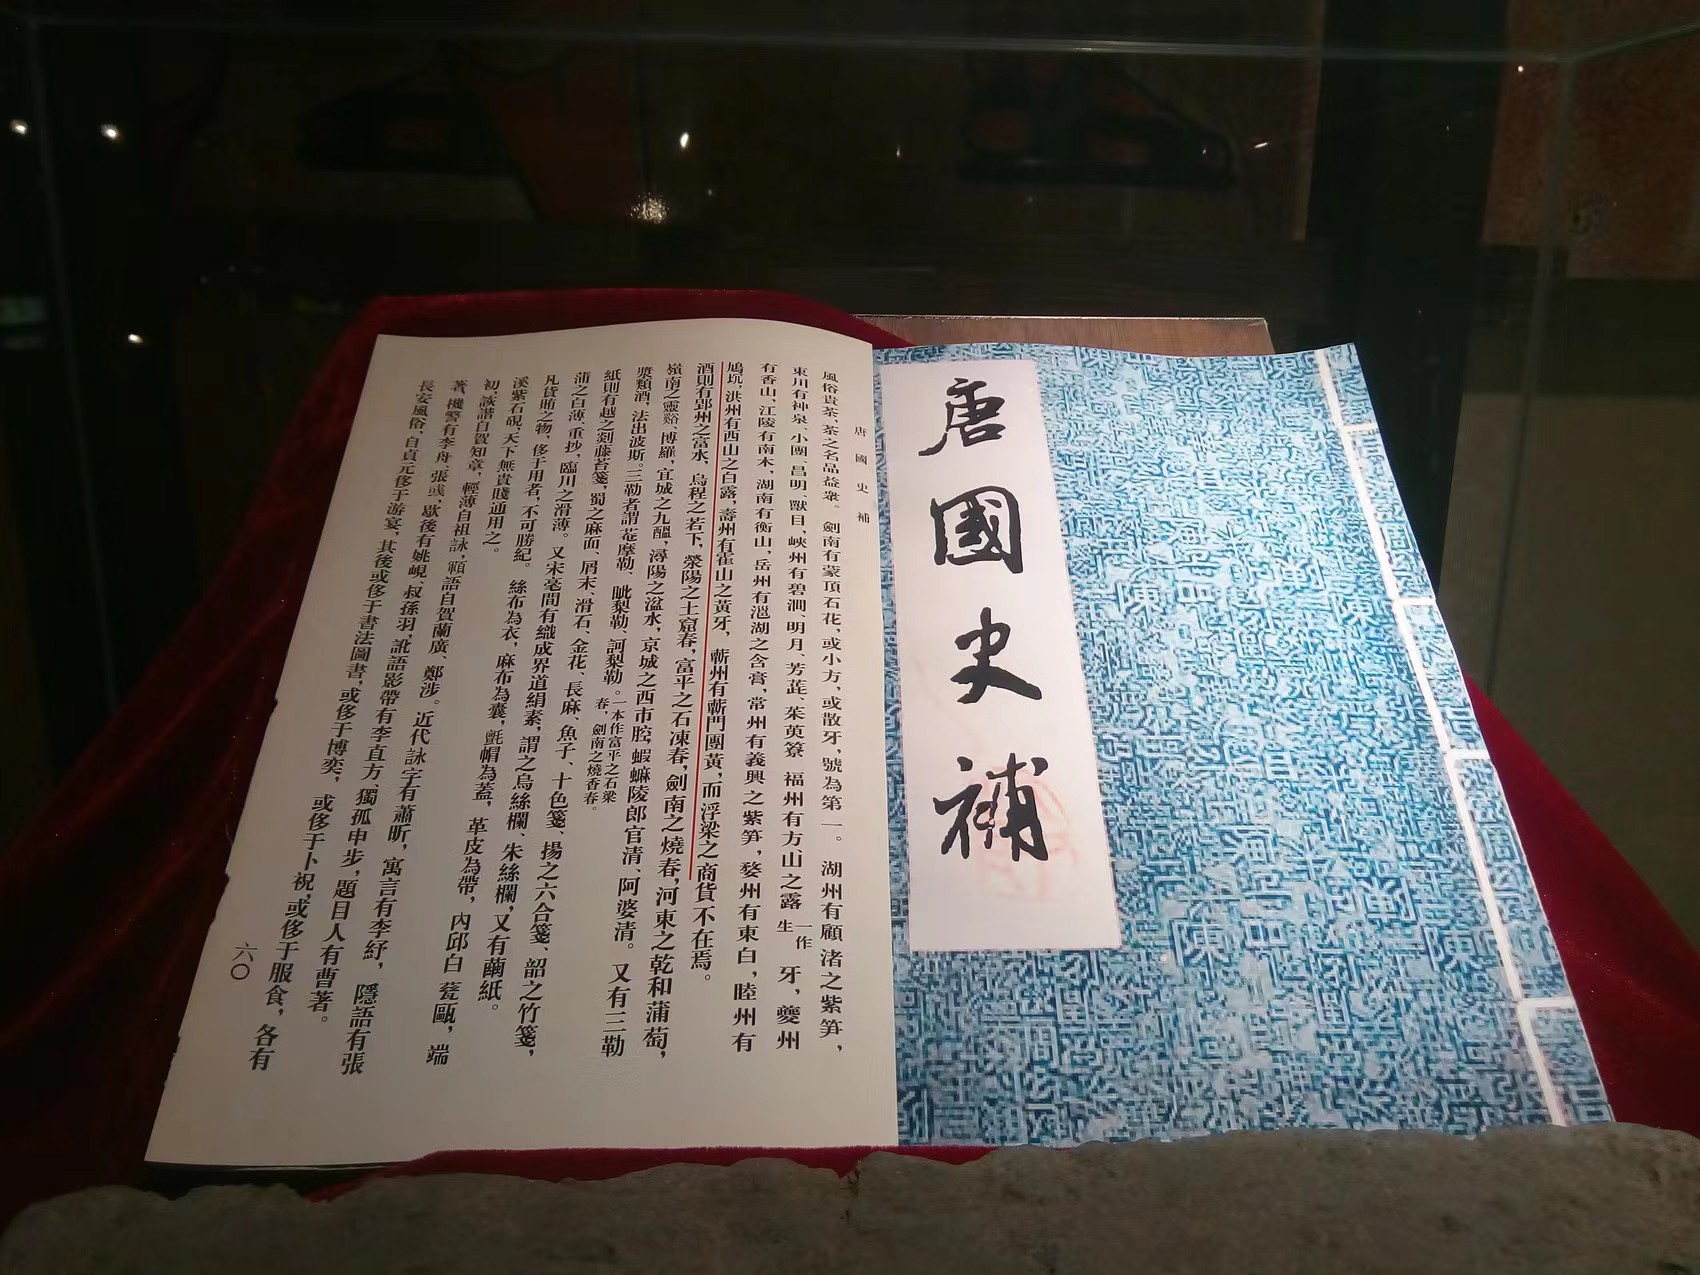 唐國史補
唐國史補
風俗貴茶、茶之名品益衆。劍南有蒙頂石花、或小方、或散牙、號為第一。湖州有顧渚之紫笋、
東川有神泉、小團、昌明、獸目、峽州有碧澗、明月、芳蕋、茱萸簝、福州有方山之露一作生牙、夔州
有香山、江陵有南木、湖南有衡山、岳州有㴩湖之含膏、常州有義興之紫笋、婺州有東白、睦州有
鳩坑、洪州有西山之白露、壽州有霍山之黃牙、蘄州有蘄門團黃、而浮梁之商貨不在焉。
酒則有郢州之富水、烏程之若下、滎陽之土窟春、富平之石凍春、劍南之燒春、河東之乾和蒲萄、
嶺南之靈谿、博羅、宜城之九醞、潯陽之湓水、京城之西市腔、蝦䗫陵郎官清、阿婆清。又有三勒
漿類酒、法出波斯。三勒者謂菴摩勒、毗梨勒、訶梨勒。一本作富平之石梁春、劍南之燒香春。
紙則有越之剡藤苔箋、蜀之麻面、屑末、滑石、金花、長麻、魚子、十色箋、揚之六合箋、韶之竹箋、
蒲之白薄、重抄、臨川之滑薄。又宋亳間有織成界道絹素、謂之烏絲欄、朱絲欄、又有繭紙。
凡貨賄之物、侈于用者、不可勝紀。絲布為衣、麻布為囊、氈帽為蓋、革皮為帶、內邱白甆甌、端
溪紫石硯、天下無貴賤通用之。
初、詼諧自賀知章、輕薄自祖詠、顊語自賀蘭廣、鄭涉。近代詠字有蕭昕、寓言有李紓、隱語有張
著、機警有李舟、張彧、歇後有姚峴、叔孫羽、訛語影帶有李直方、獨孤申步、題目人有曹著。
長安風俗、自貞元侈于游宴、其後或侈于書法圖書、或侈于博奕、或侈于卜祝、或侈于服食、各有
六〇